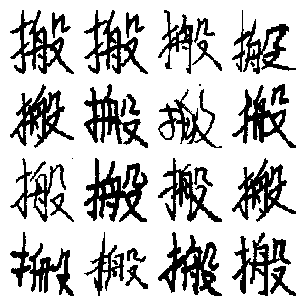 搬搬搬搬
搬搬搬搬
搬搬搬搬
搬搬搬搬